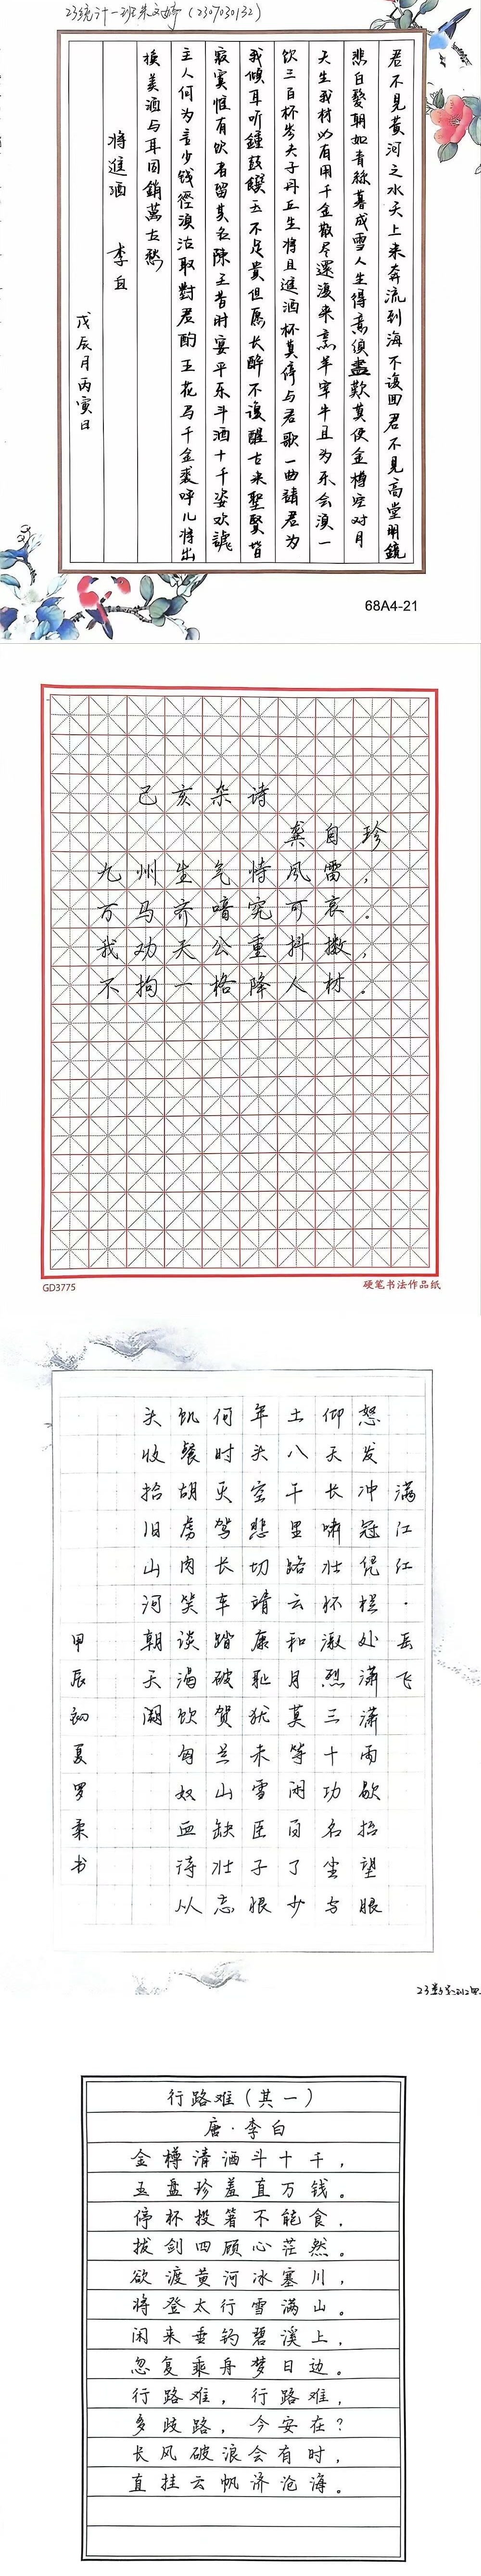 23统计一班朱文娇（2307030132）
君不见黄河之水天上来奔流到海不復回君不见高堂明鏡
悲白髮朝如青絲暮成雪人生得意须盡歡莫使金樽空对月
天生我材必有用千金散尽還復来烹羊宰牛且为乐会须一
饮三百杯岑夫子丹丘生将且進酒杯莫停与君歌一曲請君为
我倾耳听鐘鼓饌玉不足貴但愿长醉不復醒古来聖賢皆
寂寞惟有饮者留其名陳王昔时宴平乐斗酒十千姿欢謔
主人何为言少钱徑须沽取對君酌五花马千金裘呼儿将出
换美酒与耳同銷萬古愁
将進酒 李白
戊辰月丙寅日
68A4-21
己亥杂诗
龚自珍
九州生气恃风雷，
万马齐喑究可哀。
我劝天公重抖擞，
不拘一格降人材。
GD3775 硬笔书法作品纸
满江红·岳飞
怒发冲冠凭栏处潇潇雨歇抬望眼
仰天长啸壮怀激烈三十功名尘与
土八千里路云和月莫等闲白了少
年头空悲切靖康耻犹未雪臣子恨
何时灭驾长车踏破贺兰山缺壮志
饥餐胡虏肉笑谈渴饮匈奴血待从
头收拾旧山河朝天阙
甲辰初夏罗柔书
行路难（其一）
唐·李白
金樽清酒斗十千，
玉盘珍羞直万钱。
停杯投箸不能食，
拔剑四顾心茫然。
欲渡黄河冰塞川，
将登太行雪满山。
闲来垂钓碧溪上，
忽复乘舟梦日边。
行路难，行路难，
多歧路，今安在？
长风破浪会有时，
直挂云帆济沧海。